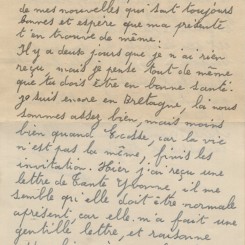 de mes nouvelles qui sont toujours
bonnes et espère que ma présente
t'en trouve de même.
Il y a deux jours que je n'ai rien
reçu, mais je pense tout de même
que tu dois être en bonne santé.
je suis encore en Bretagne, là nous
sommes assez bien, mais moins
bien quand Ecosse, car la vie
n'est pas la même, finis les
invitation. Hier j'ai reçu une
lettre de Tante Yvonne, il me
semble qu'elle doit être normale
apresent, car elle m'a fait une
gentille lettre, et raisonne